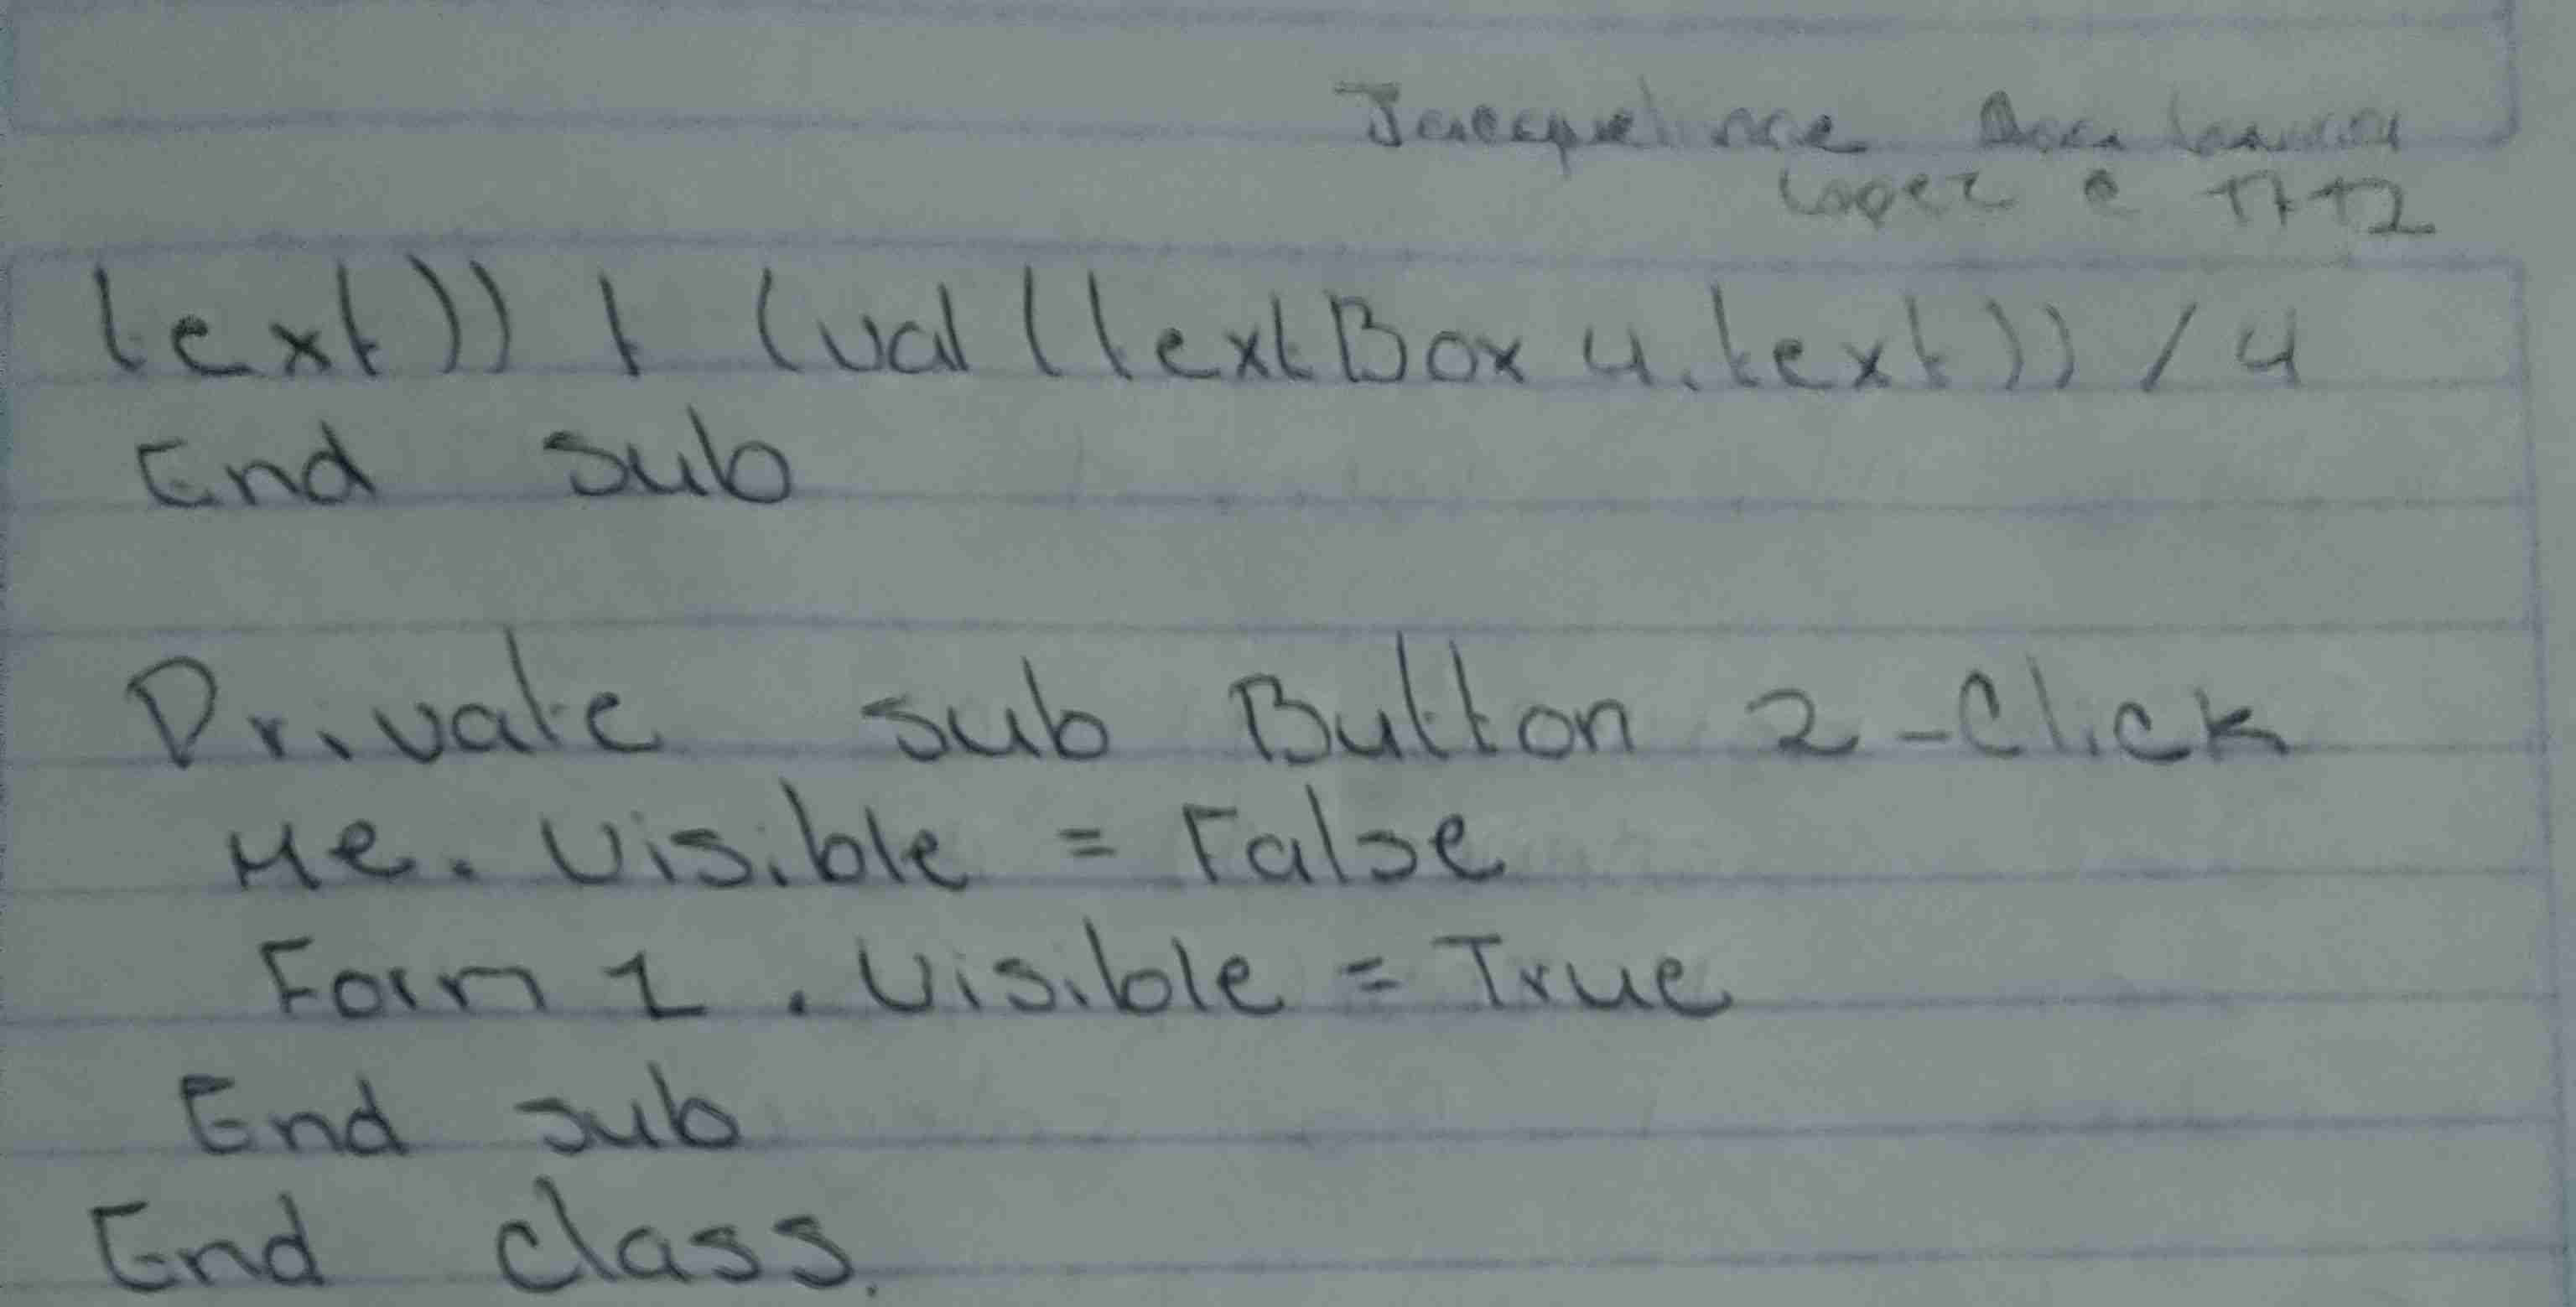 Jacqueline
Lopez
text)) + (val (textBox 4.text)) / 4
End sub
Private sub Button 2-Click
Me. Visible = False
Form 1 . Visible = True
End sub
End class.